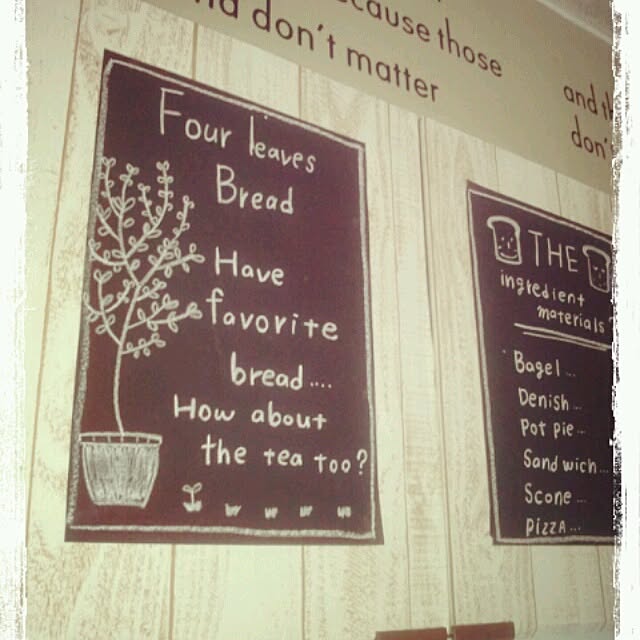 because those
and don't matter
and
don't
Four leaves
Bread
Have
favorite
bread....
How about
the tea too?
THE
ingredient
materials
Bagel...
Denish...
Pot pie...
Sandwich...
Scone...
Pizza...